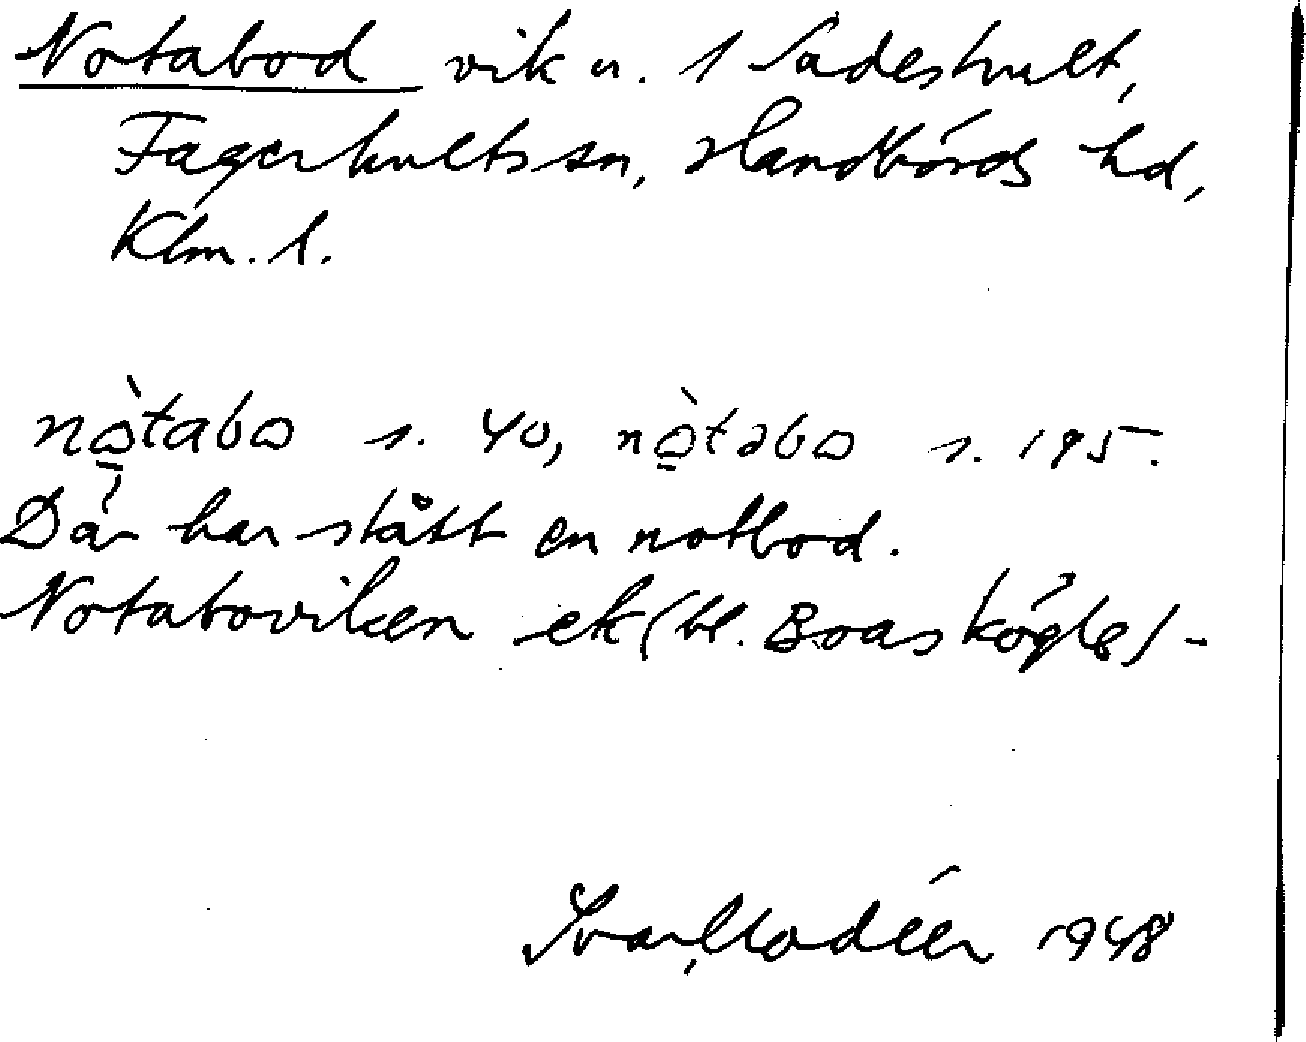 Notabod vik u. S Sadeshult,
Fagerhults sn, Handbörds hd,
Klm. l.
nò̱tabo s. 40, nò̱təbo s. 195.
Där har stått en notbod.
Notaboviken ek (bl. Boaskögle) -
Ivar Modéer 1948